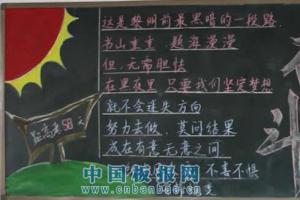 这是黎明前最黑暗的一段路
书山重重，题海漫漫
但，无需胆怯
在黑夜里，只要我们坚定梦想
就不会迷失方向
努力去做，莫问结果
成败有意无意之间
不喜不惧
距高考58天
中国板报网
www.cnbanbao.cn